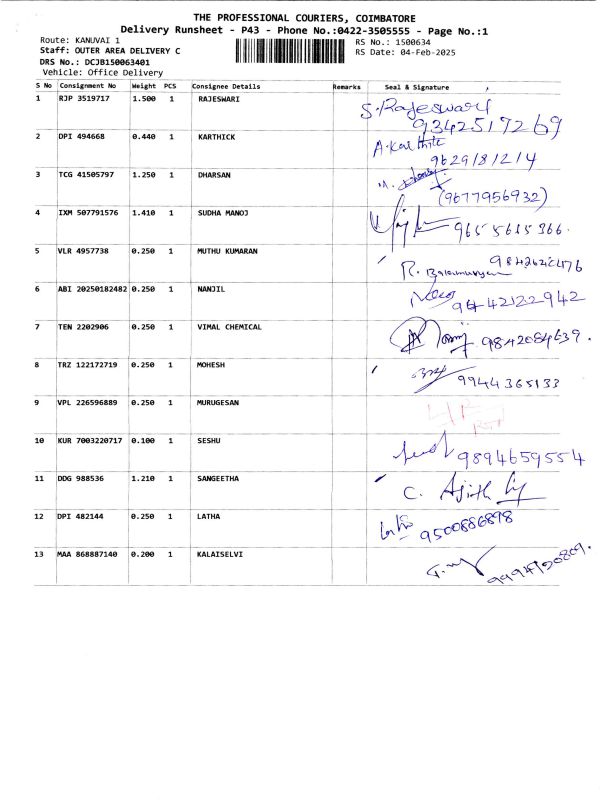 THE PROFESSIONAL COURIERS, COIMBATORE
Delivery Runsheet - P43 - Phone No.:0422-3505555 - Page No.:1
Route: KANUVAI 1
RS No.: 1500634
Staff: OUTER AREA DELIVERY C
RS Date: 04-Feb-2025
DRS No.: DCJB150063401
Vehicle: Office Delivery
S No Consignment No Weight PCS Consignee Details Remarks Seal & Signature
1 RJP 3519717 1.500 1 RAJESWARI S. Rajeswari
9342517269
2 DPI 494668 0.440 1 KARTHICK A. Karthik
9629181214
3 TCG 41505797 1.250 1 DHARSAN M.
(9677956932)
4 IXM 507791576 1.410 1 SUDHA MANOJ 9655615366.
5 VLR 4957738 0.250 1 MUTHU KUMARAN
R. Balamurugan
6 ABI 20250182482 0.250 1 NANJIL
9442122942
7 TEN 2202906 0.250 1 VIMAL CHEMICAL 9842084639.
8 TRZ 122172719 0.250 1 MOHESH 9944365133
9 VPL 226596889 0.250 1 MURUGESAN
10 KUR 7003220717 0.100 1 SESHU 9894659554
11 DDG 988536 1.210 1 SANGEETHA C. Ajith
12 DPI 482144 0.250 1 LATHA Latha 9500886898
13 MAA 868887140 0.200 1 KALAISELVI